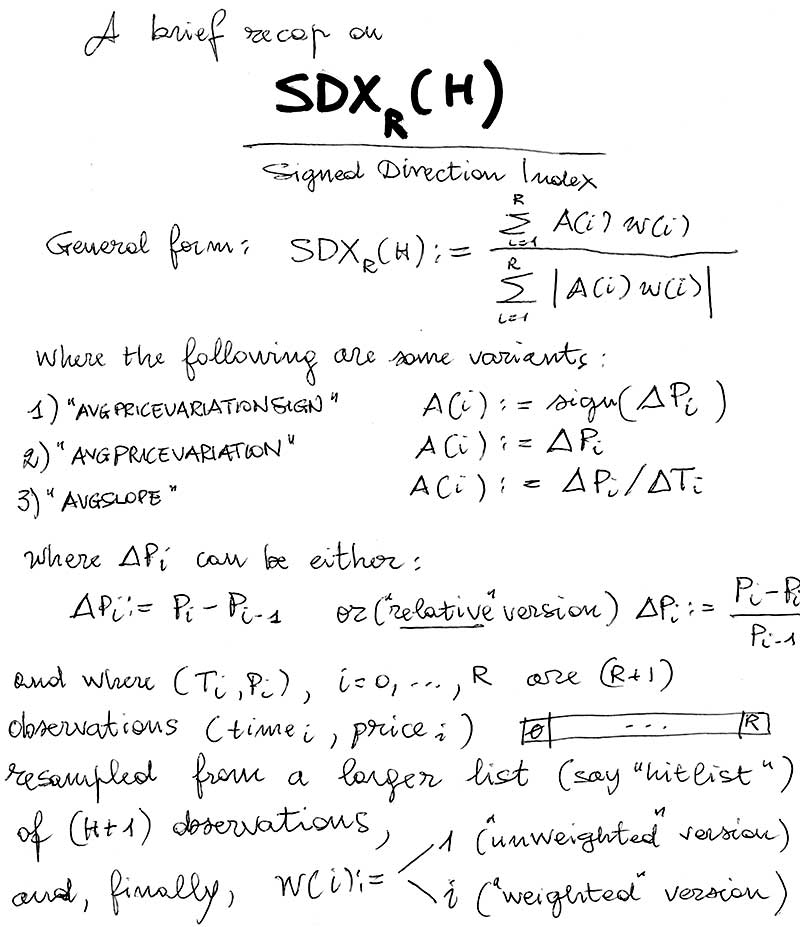 A brief recap on
SDX_R(H)
Signed Direction Index
General form: SDX_R(H) := \frac{\sum_{i=1}^{R} A(i) w(i)}{\sum_{i=1}^{R} |A(i) w(i)|}
where the following are some variants:
1) "AVGPRICEVARIATIONSIGN" A(i) := sign(ΔP_i)
2) "AVGPRICEVARIATION" A(i) := ΔP_i
3) "AVGSLOPE" A(i) := ΔP_i/ΔT_i
where ΔP_i can be either:
ΔP_i := P_i - P_{i-1} or ("relative" version) ΔP_i := \frac{P_i - P_i}{P_{i-1}}
and where (T_i, P_i), i=0, ..., R are (R+1)
observations (time_i, price_i) 0 ... R
resampled from a larger list (say "hitlist")
of (H+1) observations,
and, finally, w(i) := 1 ("unweighted" version)
i ("weighted" version)